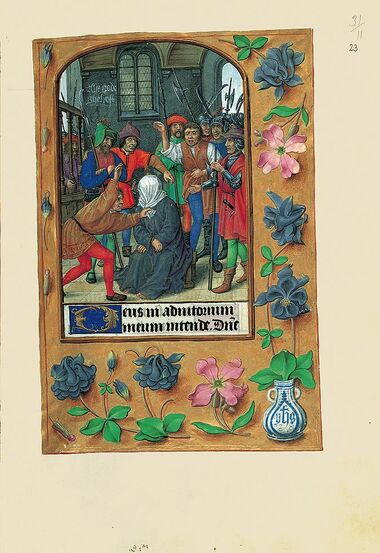 31
11
23
Deus in adiutorium
meum intende. Dñe
ihs